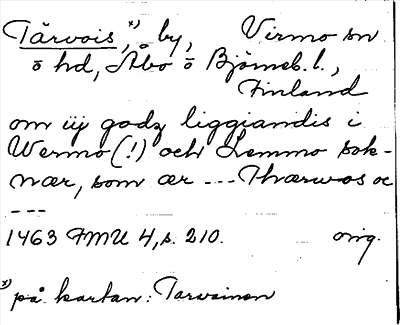 Tärvois,*) by, Virmo sn
ö hd, Åbo ö Björneb. l.,
Finland
om iij godz liggiandis i
Wermo (!) och Lemmo sok-
nær, som ær --- Thærwos oc
---
1463 FMU 4, s. 210. orig.
*) på kartan: Tarvainen